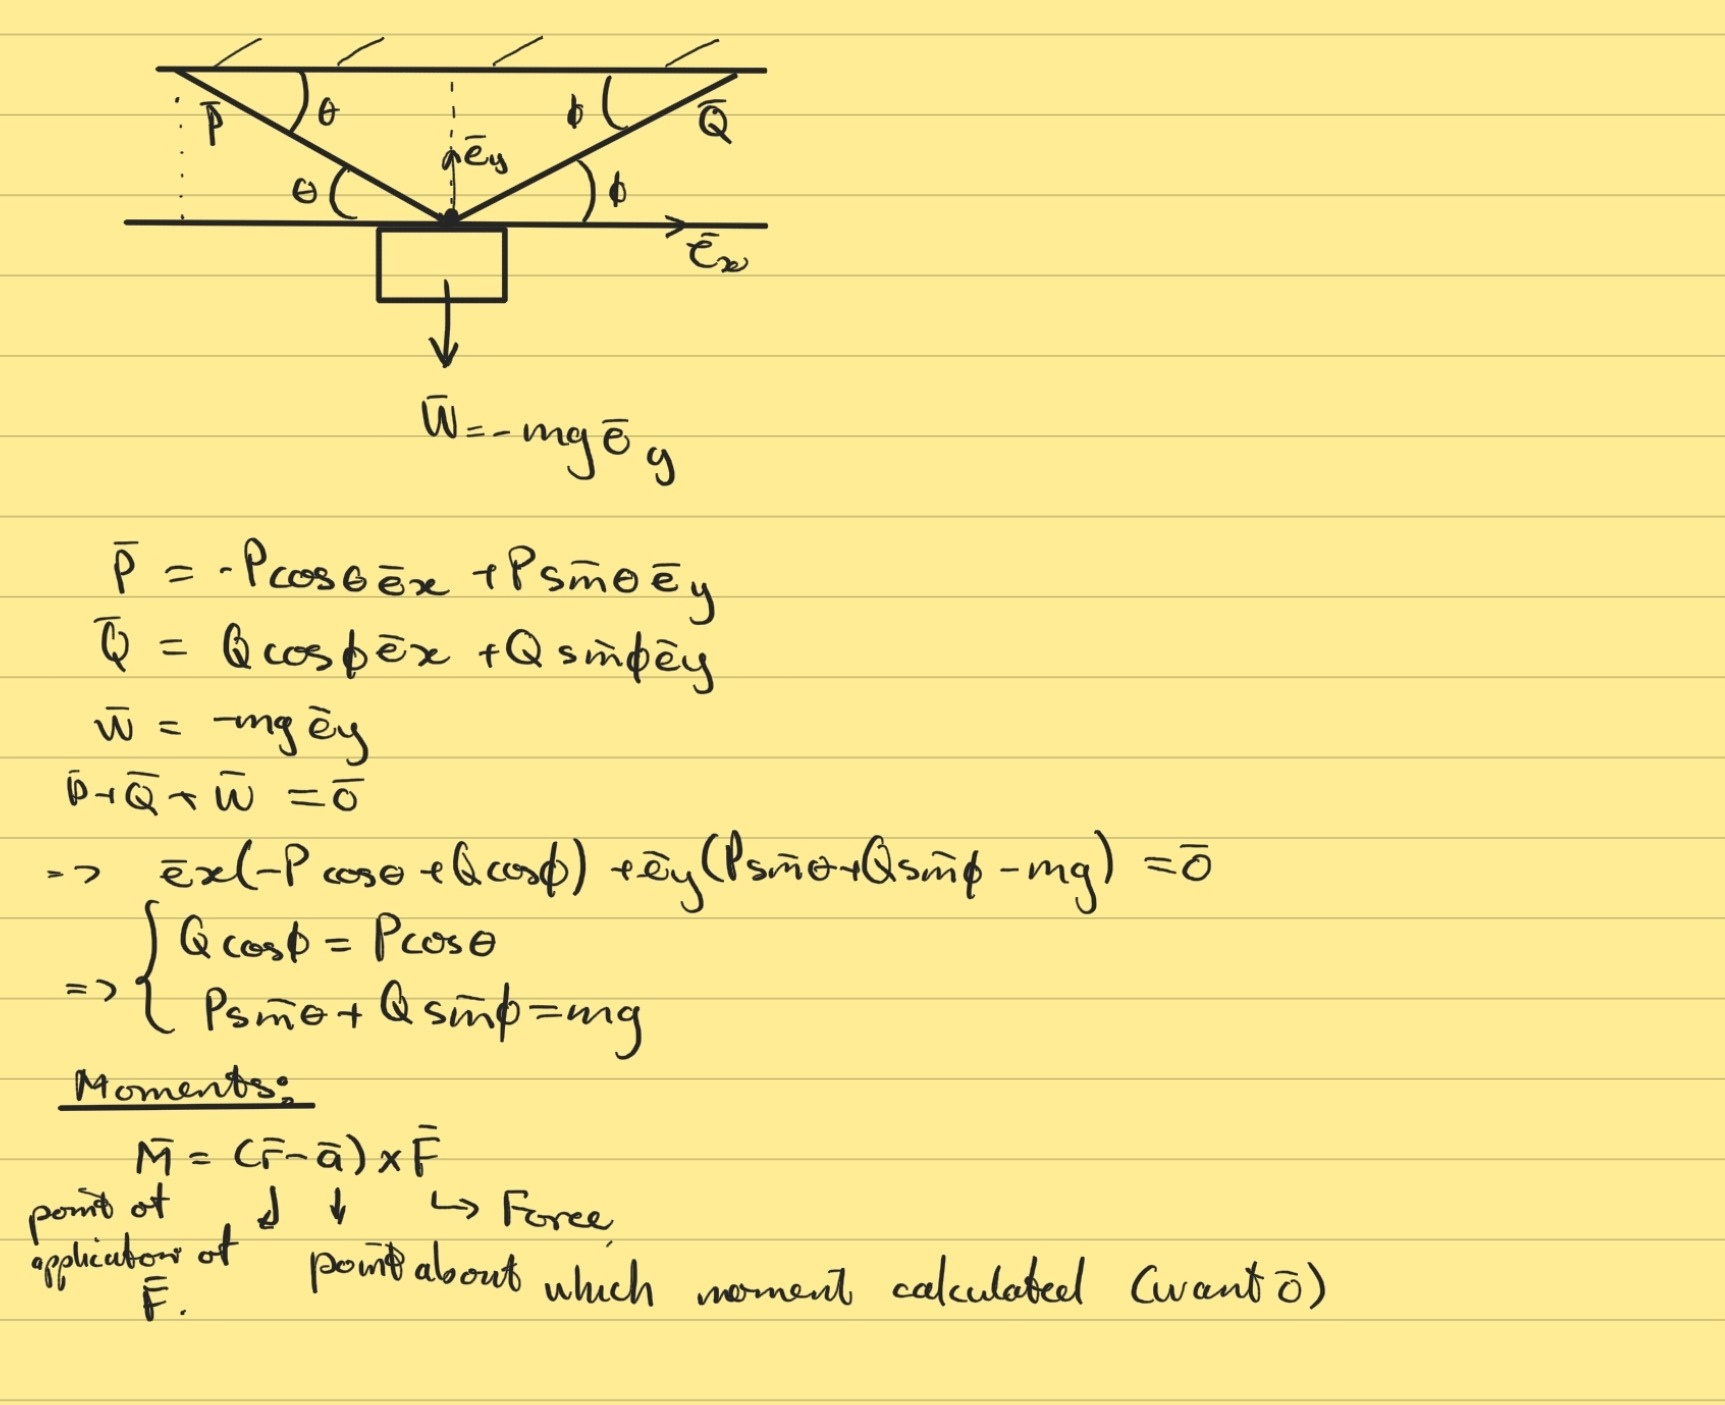 P̄ θ ϕ Q̄
ēy
θ ϕ
ēx
W̄ = - mg ēy
P̄ = -Pcosθ ēx + Psinθ ēy
Q̄ = Qcosϕ ēx + Q sinϕ ēy
W̄ = -mg ēy
P̄ + Q̄ + W̄ = 0̄
=> ēx(-P cosθ + Qcosϕ) + ēy(Psinθ + Qsinϕ - mg) = 0̄
=> { Qcosϕ = Pcosθ
Psinθ + Q sinϕ = mg
Moments:
M̄ = (r̄ - ā) × F̄
point of ↓ ↓ ↳ Force
application of point about which moment calculated (want 0̄)
F̄.